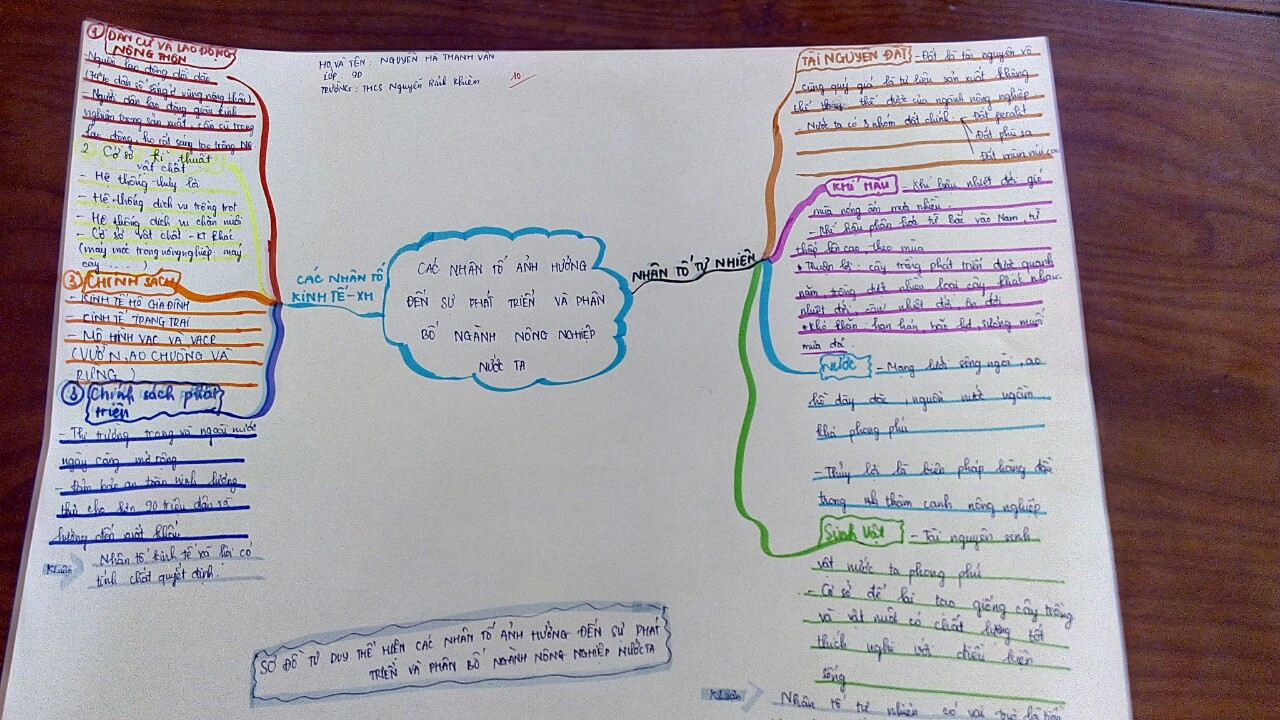 1 DÂN CƯ VÀ LAO ĐỘNG
NÔNG THÔN
- Người lao động dồi dào
(74% dân số sống ở vùng nông thôn)
- Người dân lao động giàu kinh
nghiệm trong sản xuất, cần cù trong
lao động, họ rất sáng tạo trong NG
2 Cơ sở kĩ thuật
vật chất
- Hệ thống thủy lợi
- Hệ thống dịch vụ trồng trọt
- Hệ thống dịch vụ chăn nuôi
- Cơ sở vật chất - KT khác
(máy móc trong nông nghiệp: máy
cày ......)
3 CHÍNH SÁCH
- KINH TẾ HỘ GIA ĐÌNH
- KINH TẾ TRANG TRẠI
- MÔ HÌNH VAC VÀ VACR
(VƯỜN, AO CHUỒNG VÀ
RỪNG)
3 Chính sách phát
triển
- Thị trường trong và ngoài nước
ngày càng mở rộng
- Đảm bảo an toàn lương
thực cho hơn 90 triệu dân và
hướng đến xuất khẩu
KLuận
Nhân tố kinh tế xã hội có
tính chất quyết định.
HỌ VÀ TÊN: NGUYỄN HÀ THANH VÂN
LỚP: 9D
TRƯỜNG: THCS Nguyễn Bỉnh Khiêm
10
CÁC NHÂN TỐ
KINH TẾ-XH
CÁC NHÂN TỐ ẢNH HƯỞNG
ĐẾN SỰ PHÁT TRIỂN VÀ PHÂN
BỐ NGÀNH NÔNG NGHIỆP
NƯỚC TA
NHÂN TỐ TỰ NHIÊN
TÀI NGUYÊN ĐẤT - Đất là tài nguyên vô
cùng quý giá là tư liệu sản xuất không
thể thay thế được của ngành nông nghiệp
- Nước ta có 3 nhóm đất chính: Đất feralit
Đất phù sa
Đất mùn núi cao
KHÍ HẬU - Khí hậu nhiệt đới gió
mùa nóng ẩm mưa nhiều.
- Khí hậu phân hóa từ Bắc vào Nam, từ
thấp lên cao, theo mùa
• Thuận lợi: cây trồng phát triển được quanh
năm, trồng được nhiều loại cây khác nhau:
nhiệt đới, cận nhiệt đới, ôn đới
• Khó khăn: hạn hán, bão lũ, sương muối
mưa đá.
Nước - Mạng lưới sông ngòi, ao
hồ dày đặc, nguồn nước ngầm
khá phong phú
- Thủy lợi là biện pháp hàng đầu
trong thâm canh nông nghiệp
Sinh Vật - Tài nguyên sinh
vật nước ta phong phú
- Cơ sở để lai tạo giống cây trồng
và vật nuôi có chất lượng tốt
thích nghi với điều kiện
sống
SƠ ĐỒ TƯ DUY THỂ HIỆN CÁC NHÂN TỐ ẢNH HƯỞNG ĐẾN SỰ PHÁT
TRIỂN VÀ PHÂN BỐ NGÀNH NÔNG NGHIỆP NƯỚC TA
KLuận
Nhân tố tự nhiên có vai trò là